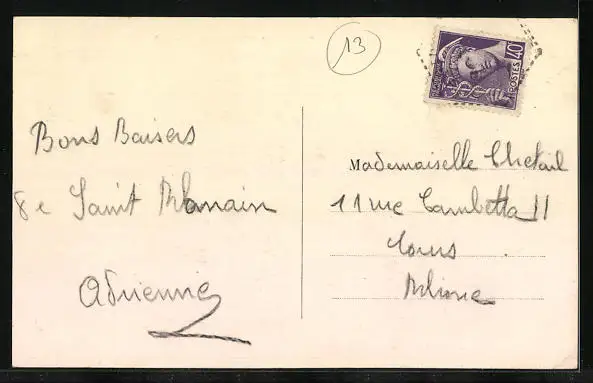 13
40
POSTES
Bons Baisers
de Saint Romain
Adrienne
Mademoiselle Chetail
11 rue Gambetta 11
Cours
Rhône